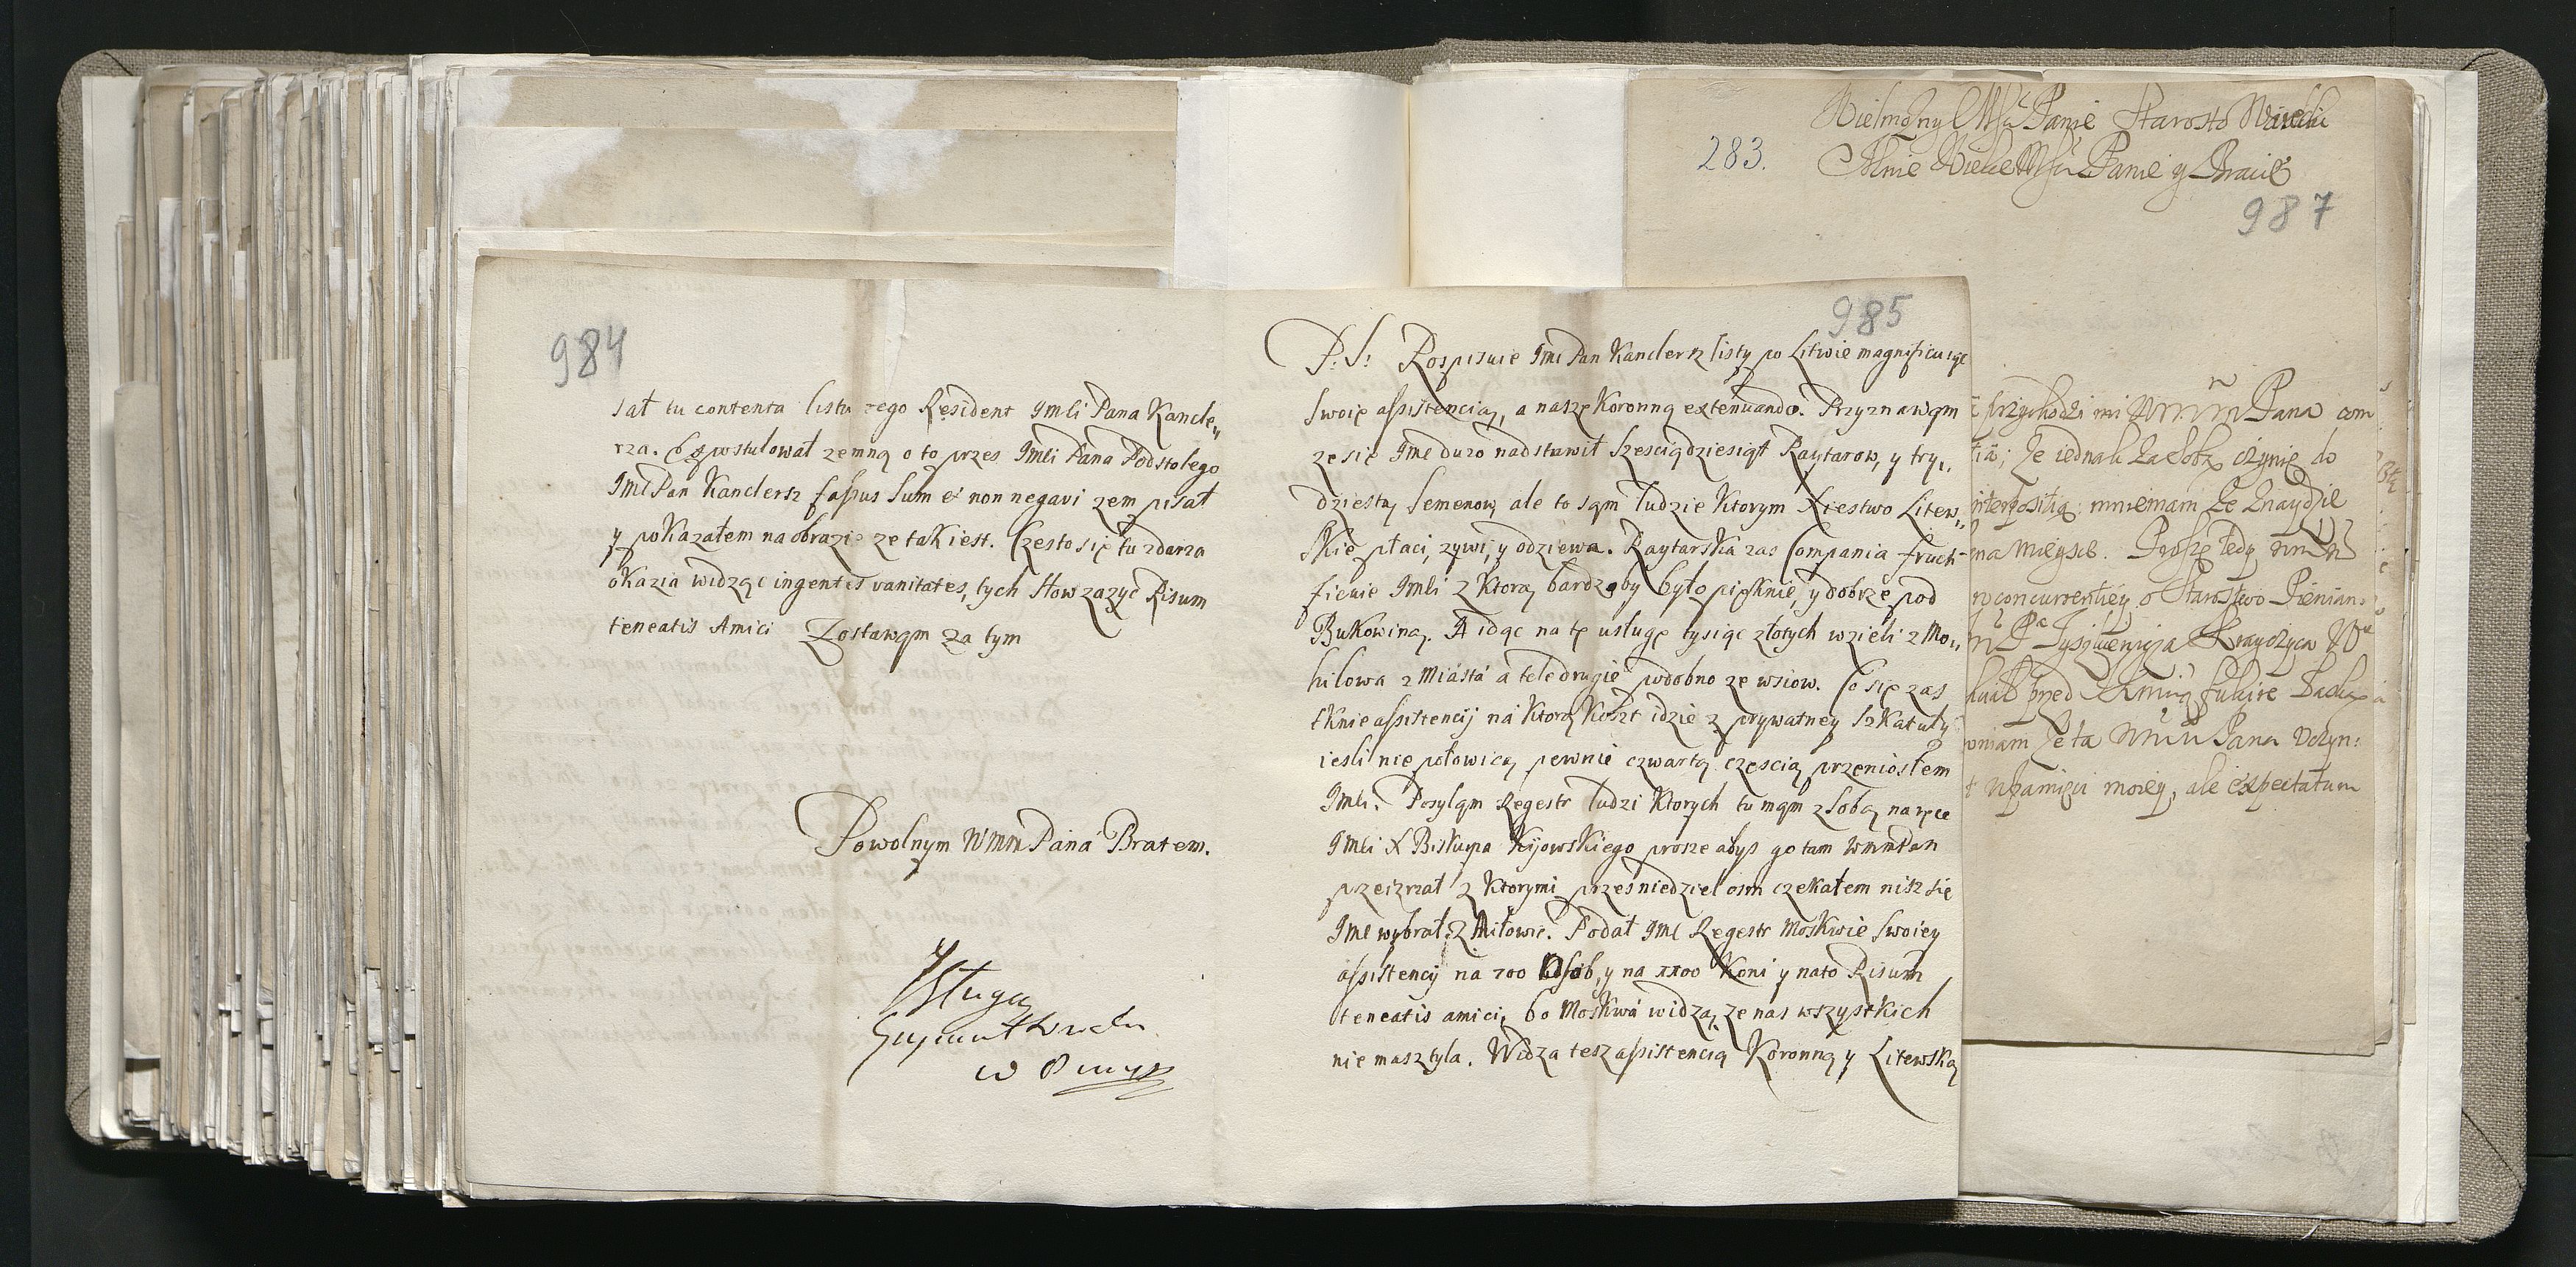 984
sał tu contenta listu tego Resident Jmći Pana Kancle„
rza. Expostulował zemną o to przes Jmći Pana Podstolego
Jmć Pan Kanclersz fassus sum et non negavi zem pisał
y pokazałem na obrazie ze tak iest. Często się tu zdarza
okazia widząc ingentes vanitates, tych słow zazyć Risum
teneatis Amici Zostawąm za tym
Powolnym WMM Pána Bratem.
y Sługą
985
P: S: Rospisuie Jmć Pan Kanclersz listy po Litwie magnificuiąc
swoię assistencią, a naszę Koronną extenuando. Przyznawąm
ze się Jmć duzo nadstawił sześciądziesiąt Raytarow, y trzy„
dziestą Semenow, ale to sąm ludzie ktorym Xiestwo Litew„
skie płaci, zywi, y odziewa. Raytarska zas Compania fruch
ficuie Jmći z ktorą bardzoby było pięknie, y dobrze pod
Bukowiną. A idąc na tę usługę tysiąc złotych wzieli z Mo„
hilowa z Miástá á tele drugie podobno ze wsiow. Co się zas
tknie assistencij ná ktorą koszt idzie z prywatney szkatuły
iesli nie połowicą pewnie czwartą częscią przeniosłem
Jmći. Posyląm Regestr ludzi ktorych tu mąm z sobą na ręce
Jmći X Biskupa Kijowskiego prosze abys go tam WMMPan
przeirzał z ktorymi przes niedziel osm czekałem nisz się
Jmć wybrał z Mitowie. Podał Jmć Regestr Moskwie swoiey
assistencij na 700 Osob, y na 1100 Koni y nato Risum
teneatis amici, bo Moskwá widzą, ze nas wszystkich
nie masz tyla. Widza tesz assistencią Koronną y Litewską
283.
Wielmozny Mści Panie Starosto
Mnie Wielce Mści Panie y Bracie
987
przychodzi mi Pana com
ze iednak za sobą czynię do
mniemam ze znaydzie
ma mieysce. Proszę tedy
w concurrentiey o Starostwo
ze ta Pana
w pamięci moiey, ale expectatum